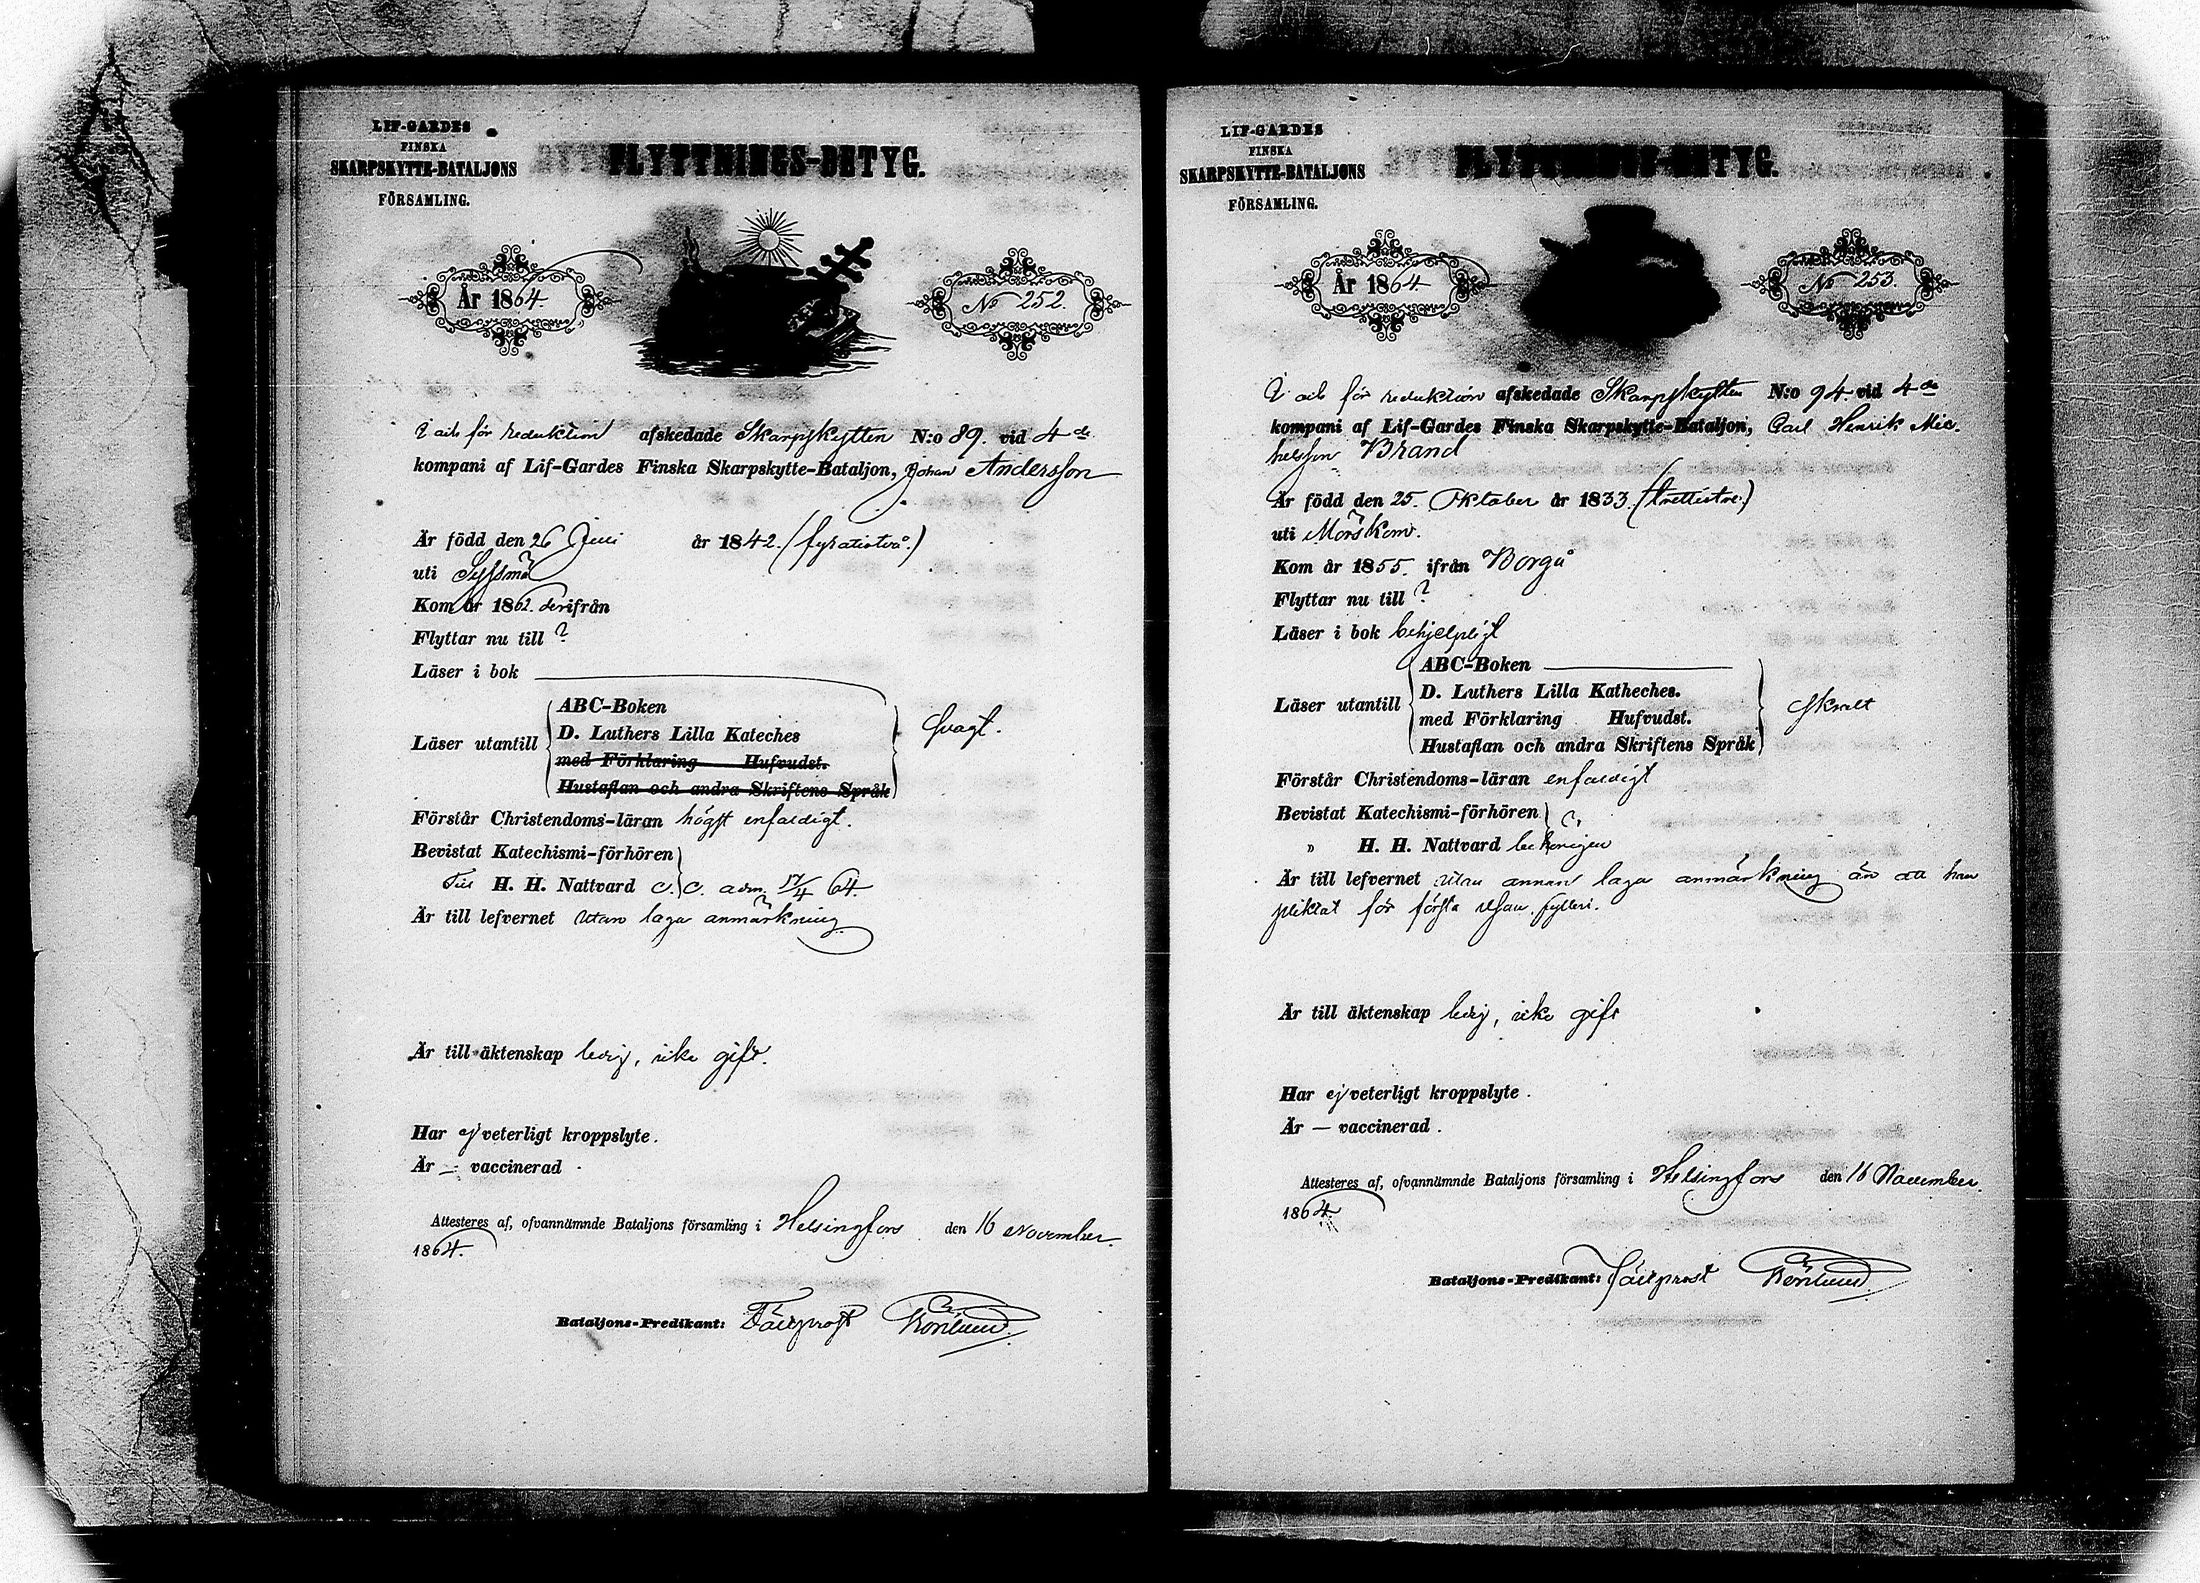 LIF-GARDES
FINSKA
SKARPSKYTTE-BATALJONS
FÖRSAMLING.
FLYTTNINGS-BETYG.
År 1864
No 252.
för reduktion afskedade Skarpskytten N:o 89. vid 4de
kompani af Lif-Gardes Finska Skarpskytte-Bataljon, Johan Andersson
Är född den 26 Juni år 1842. (fyratiotvå.)
uti Sysmä
Kom år 1862. derifrån
Flyttar nu till ?
Läser i bok
Läser utantill
ABC-Boken
D. Luthers Lilla Kateches
med Förklaring Hufvudst.
Hustaflan och andra Skriftens Språk
svagt.
Förstår Christendoms-läran högst enfaldigt.
Bevistat Katechismi-förhören
Till H. H. Nattvard c. c. adm. 17/4 64
Är till lefvernet utan laga anmärkning
Är till äktenskap ledig, icke gift.
Har ej veterligt kroppslyte.
Är — vaccinerad
Attesteres af, ofvannämnde Bataljons församling i Helsingfors den 16 November
1864.
Bataljons-Predikant: Fältprost
LIF-GARDES
FINSKA
SKARPSKYTTE-BATALJONS
FÖRSAMLING.
FLYTTNINGS-BETYG.
År 1864
No 253.
för reduktion afskedade Skarpskytten N:o 94 vid 4de
kompani af Lif-Gardes Finska Skarpskytte-Bataljon, Carl Henrik Mic-
helsson Brand
Är född den 25. Oktober år 1833. (trettiotre.)
uti Mörskom.
Kom år 1855. ifrån Borgå
Flyttar nu till ?
Läser i bok behjelpligt
Läser utantill
ABC-Boken
D. Luthers Lilla Katheches.
med Förklaring Hufvudst.
Hustaflan och andra Skriftens Språk
skralt
Förstår Christendoms-läran enfaldigt
Bevistat Katechismi-förhören ?
" H. H. Nattvard behörigen
Är till lefvernet utan annan laga anmärkning än att han
pliktat för första resan fylleri.
Är till äktenskap ledig, icke gift
Har ej veterligt kroppslyte.
Är — vaccinerad.
Attesteres af, ofvannämnde Bataljons församling i Helsingfors den 16 November.
1864.
Bataljons-Predikant: Fältprost